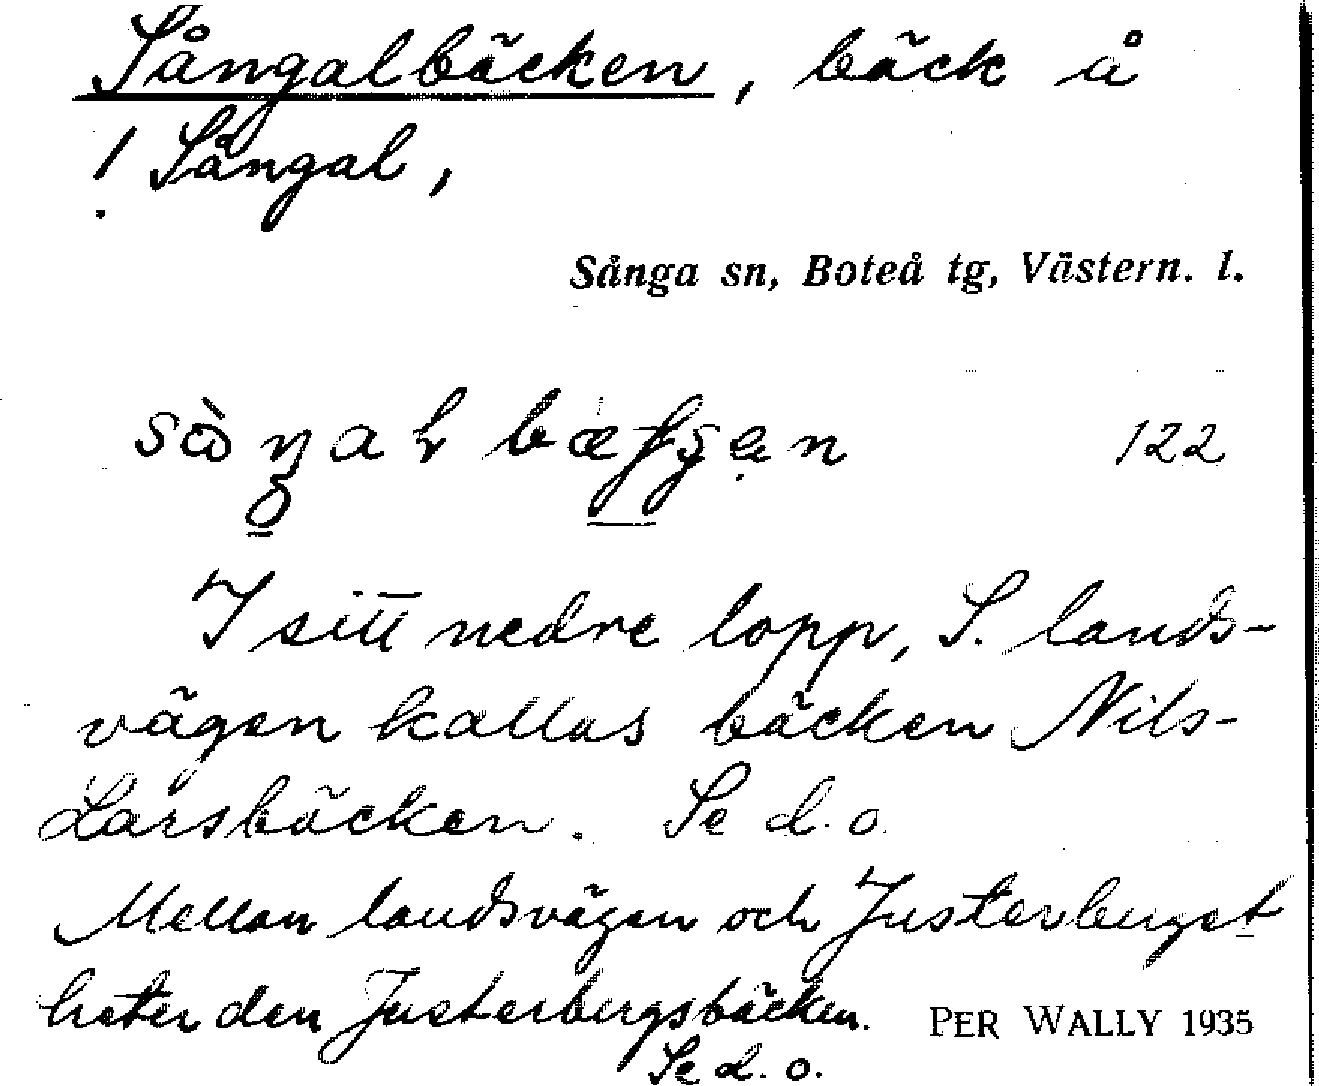 Sångalbäcken, bäck å
! Sångal,
Sånga sn, Boteå tg, Västern. l.
122
I sitt nedre lopp, S. lands-
vägen kallas bäcken Nils-
Larsbäcken. Se d. o.
Mellan landsvägen och Justerberget
heter den Justerbergsbäcken.
PER WALLY 1935
Se d. o.